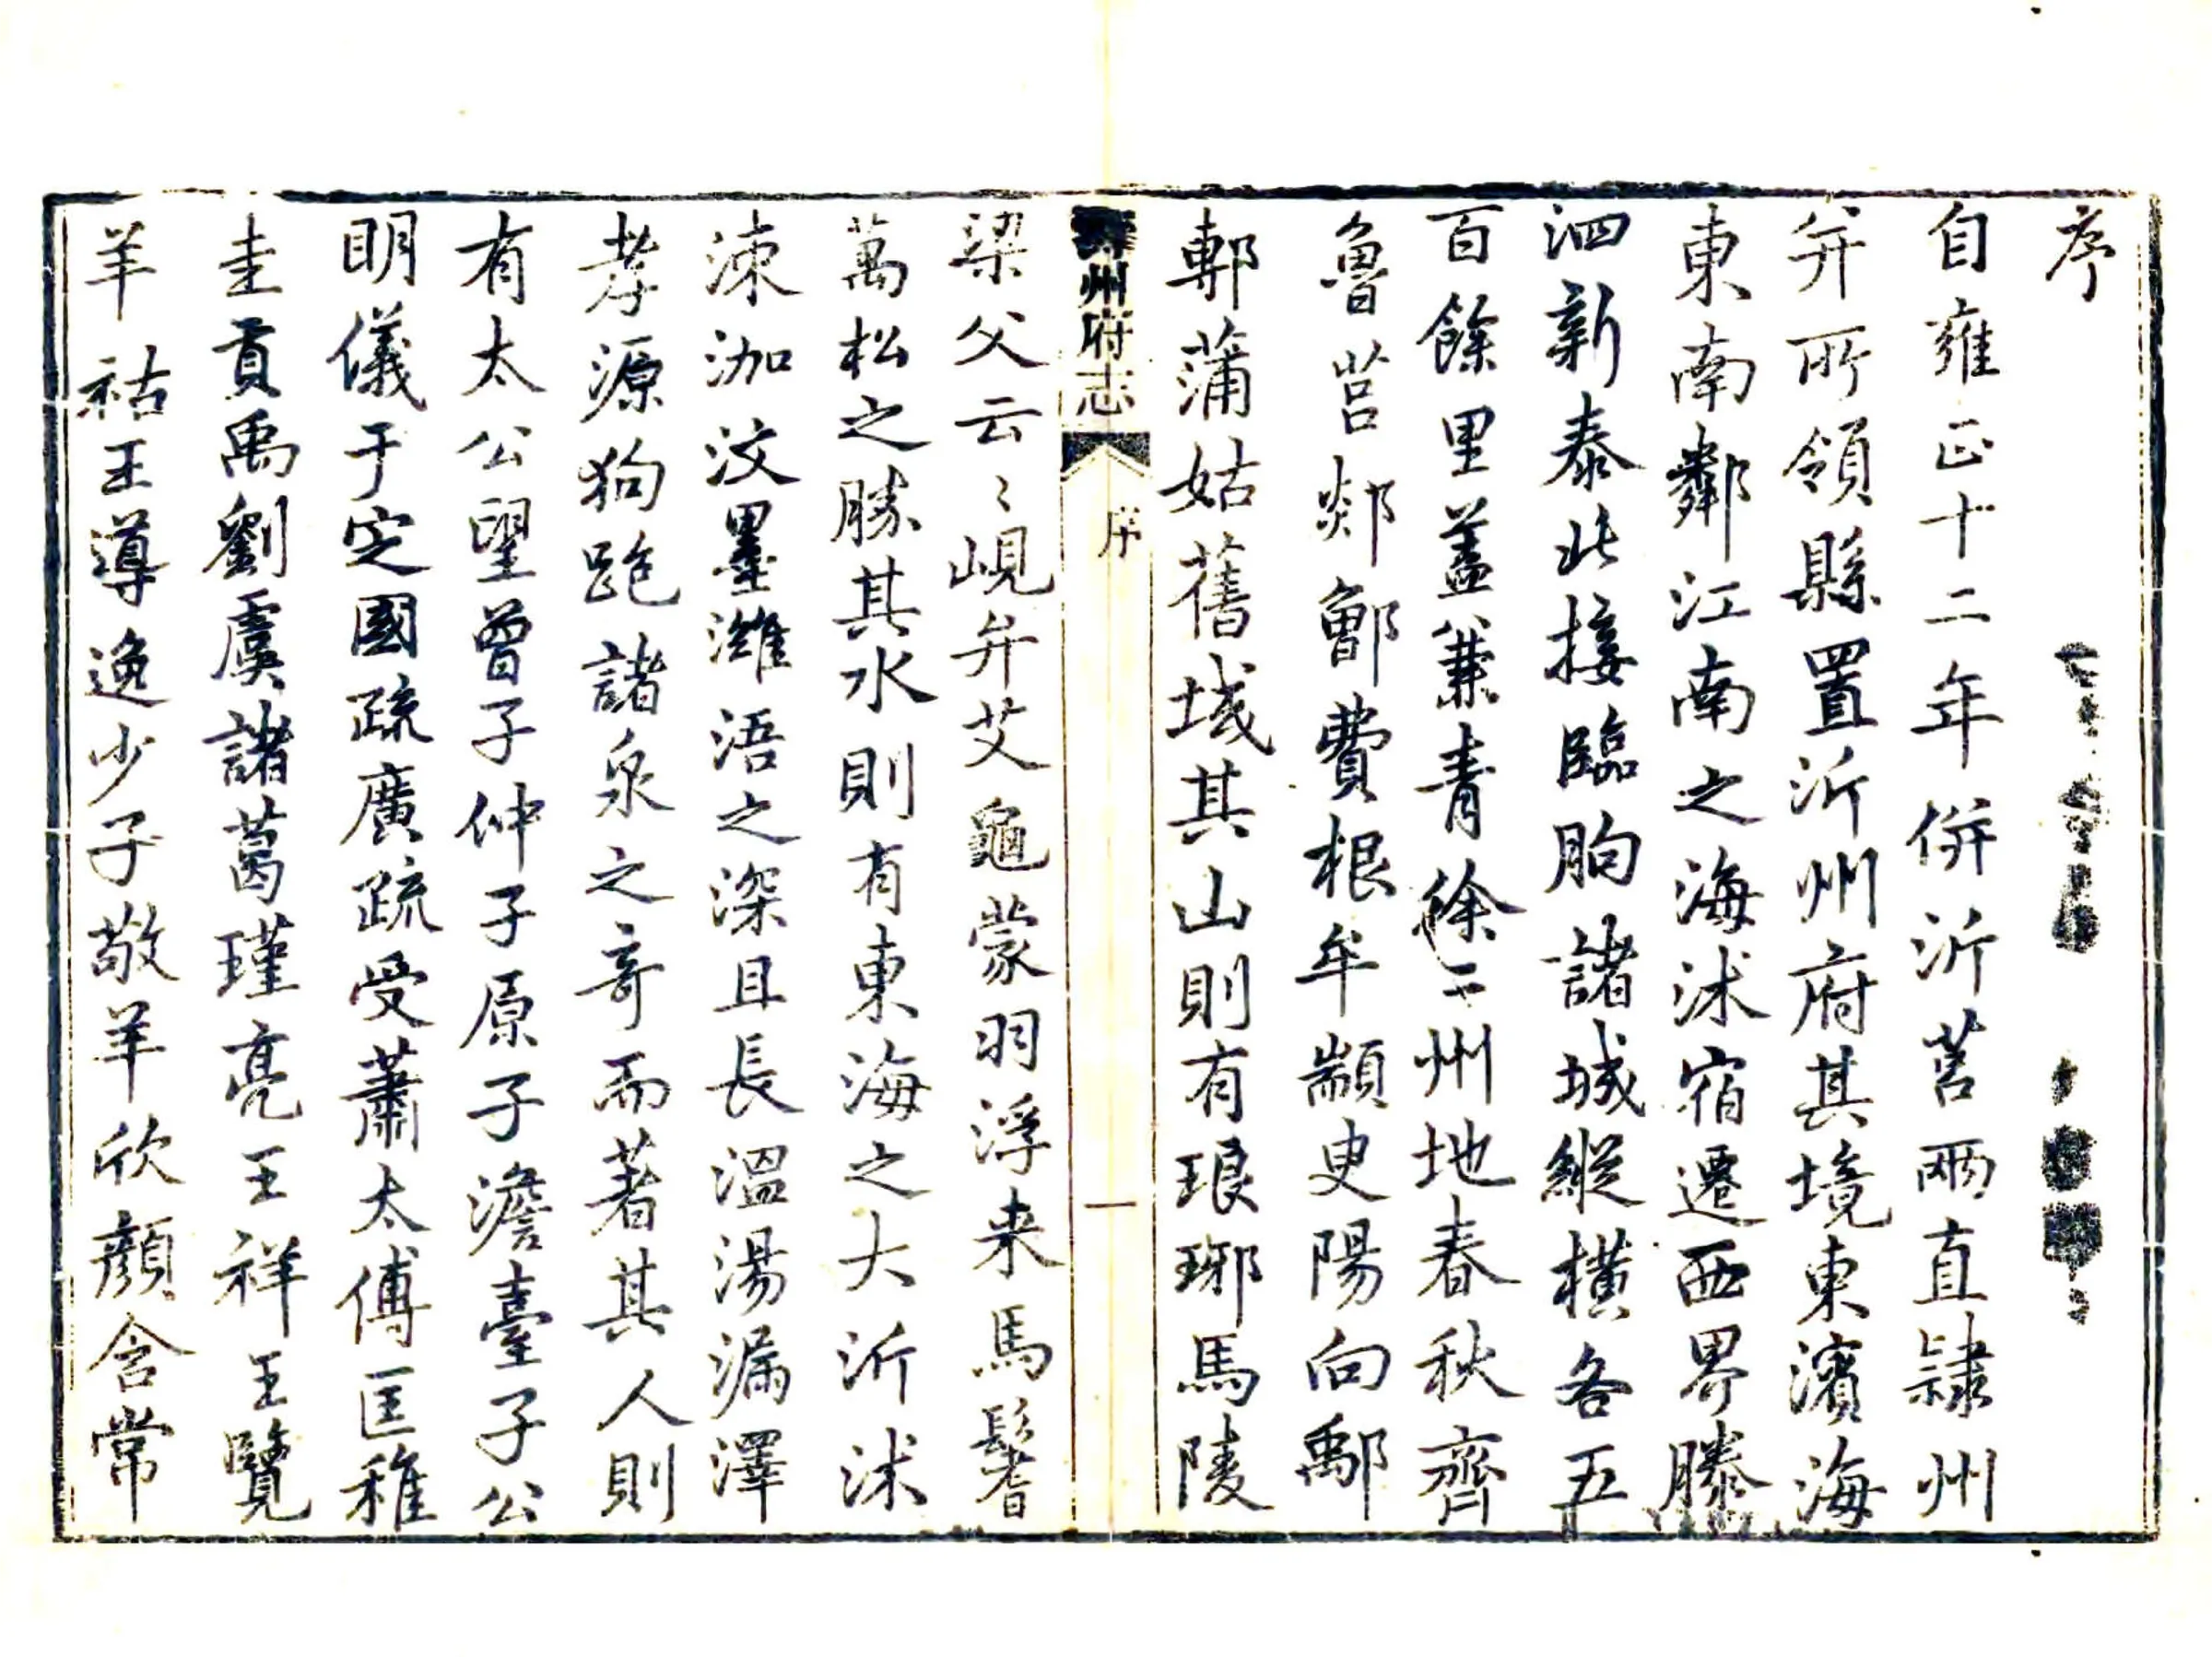 序
自雍正十二年併沂莒兩直隷州
并所領縣置沂州府其境東濱海
東南鄰江南之海沭宿遷西界滕
泗新泰北接臨朐諸城縱橫各五
百餘里蓋兼青徐二州地春秋齊
魯莒郯鄫費根牟顓臾陽向鄅
鄆蒲姑舊域其山則有琅琊馬陵
州府志
序
一
梁父云〻峴弁艾龜蒙羽浮来馬鬐
萬松之勝其水則有東海之大沂沭
涑泇汶墨濰浯之深且長溫湯漏澤
孝源狗跑諸泉之奇而著其人則
有太公望曾子仲子原子澹臺子公
明儀于定國疏廣疏受蕭太傅匡稚
圭貢禹劉虞諸葛瑾亮王祥王覽
羊祜王導逸少子敬羊欣顏含常